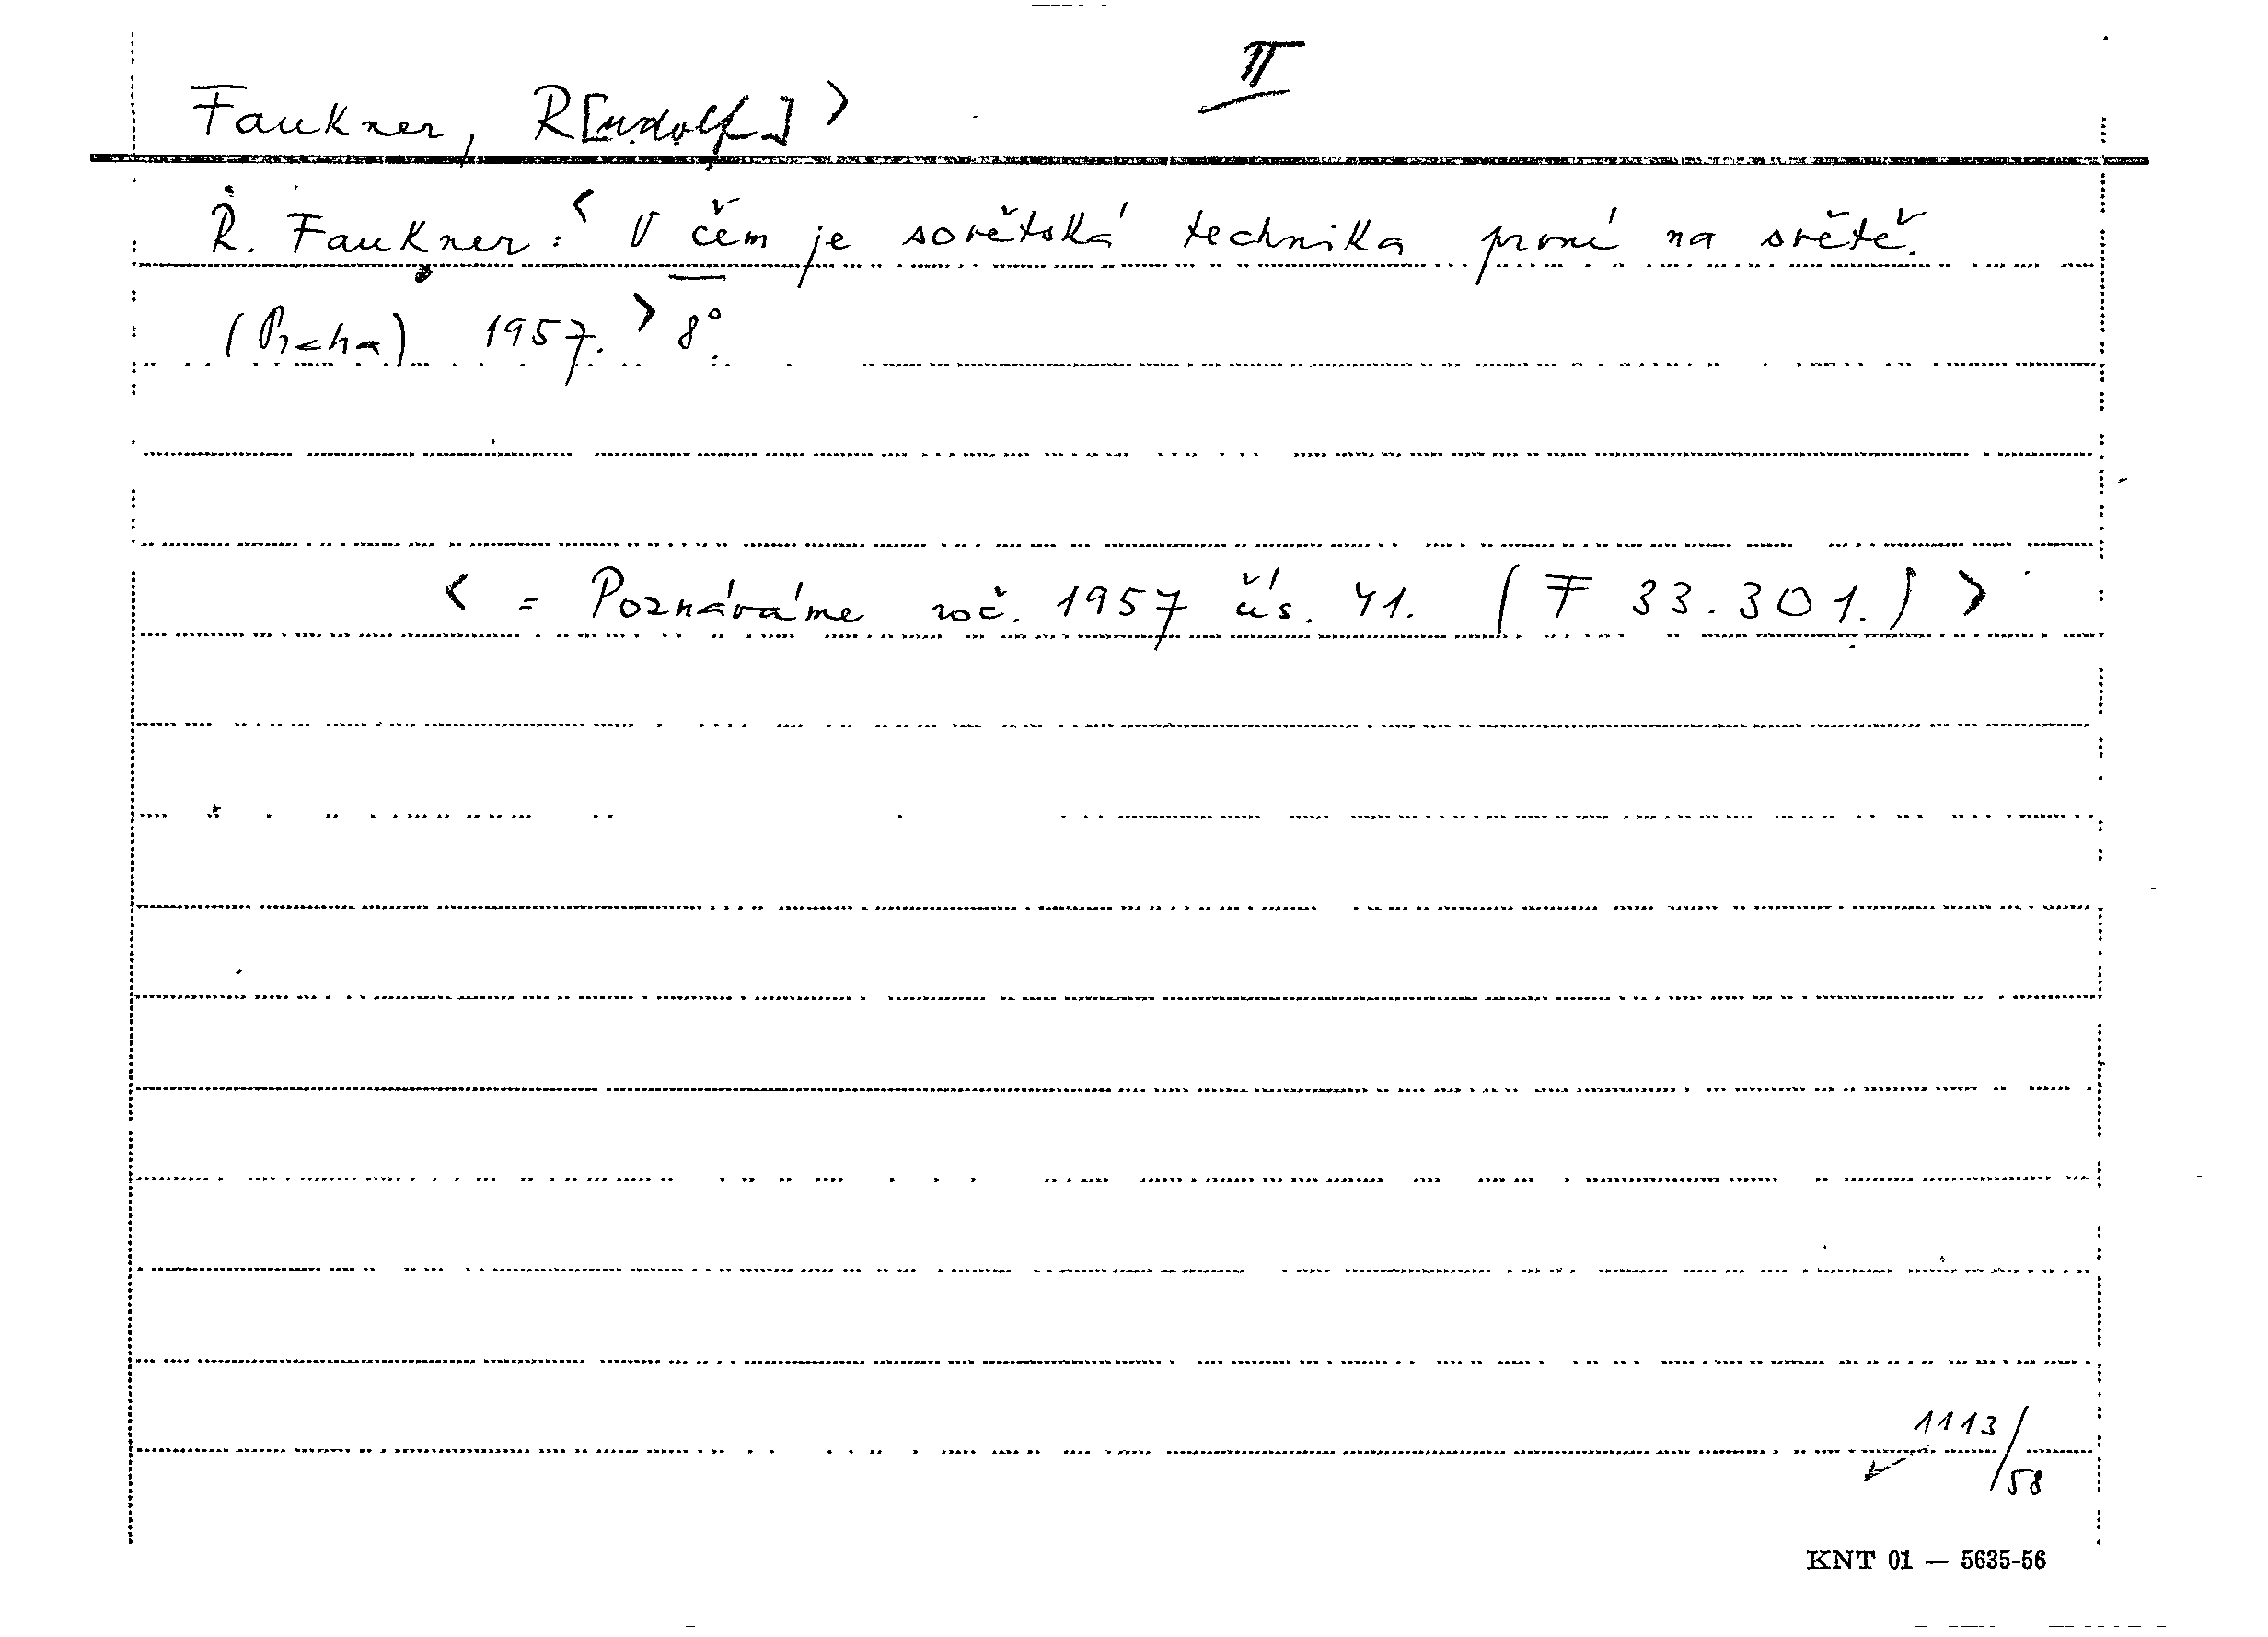 II
Faukner, R[udolf] >
R. Faukner: < V čem je sovětská technika první na světě.
(Praha) 1957. > 8°.
< = Poznáváme roč. 1957 čís. 41. (F 33.301.) >
1113/58
KNT 01 — 5635-56